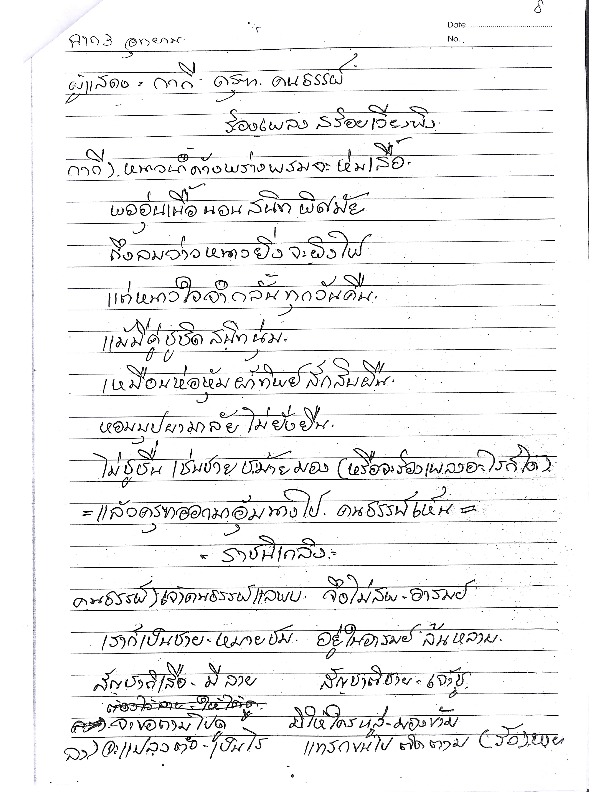 8
Date
No.
ฉาก 3 อุทยาน
ผู้แสดง = กากี - ครุฑ. คนธรรพ์
ร้องเพลง สร้อยเวียงพิง
กากี) หนาวน้ำค้างพร่างพรมจะห่มเสื้อ
พออุ่นเนื้อนอนสนิทพิศมัย
ถึงลมว่าวหนาวยิ่งจะผิงไฟ
แต่หนาวใจจำกลั้นทุกวันคืน
แม้มีคู่ชูชิดสนิทนุ่ม
เหมือนห่อหุ้มผ้าทิพย์สักสิบผืน
หอมบุปผามาลัยไม่ยั่งยืน
ไม่ชูชื่นเช่นชายชม้ายมอง (หรือจะร้องเพลงอะไรก็ได้)
= แล้วครุฑออกมาอุ้มนางไป. คนธรรพ์เห็น =
- ราชนิเกลิง -
คนธรรพ์) เจ้าคนธรรพ์แสพบ จึงไม่สบ-อารมย์
เราก็เป็นชาย-หมายชม อยู่ในอารมย์ ล้นหลาย
สัญชาติเสือ-มีลาย สัญชาติชาย-เจ้าชู้
จะขอตามไปดู มิให้ใครหลู่-มองข้าม
ลา) จะแปลงตัว-เป็นไร แทรกขนไป ติดตาม (รับ)